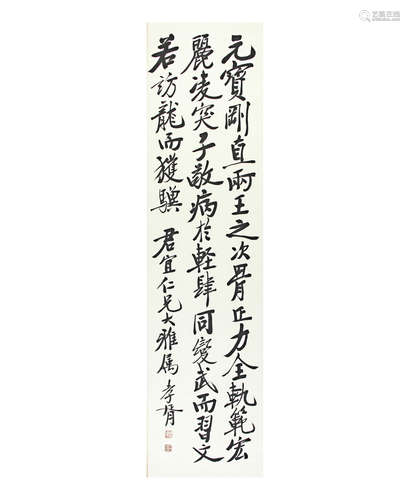 元寶剛直兩王之次骨正力全軌範宏
麗淩突子敬病於輕肆同變武而習文
若訪龍而獲驥 君宜仁兄大雅属 孝胥